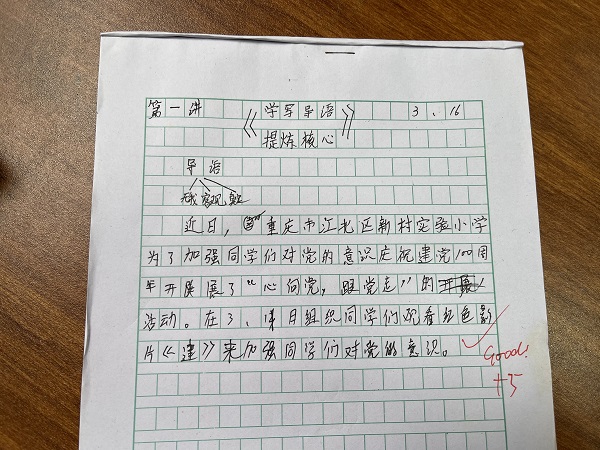 第一讲 《学写导语 3、16
提炼核心》
导语
客观
近日，重庆市江北区新村实验小学
为了加强同学们对党的意识庆祝建党100周
年开展展了“心向党，跟党走”的
活动。在3、 日组织同学们观看红色影
片《建》来加强同学们对党的意识。
Good!
+5